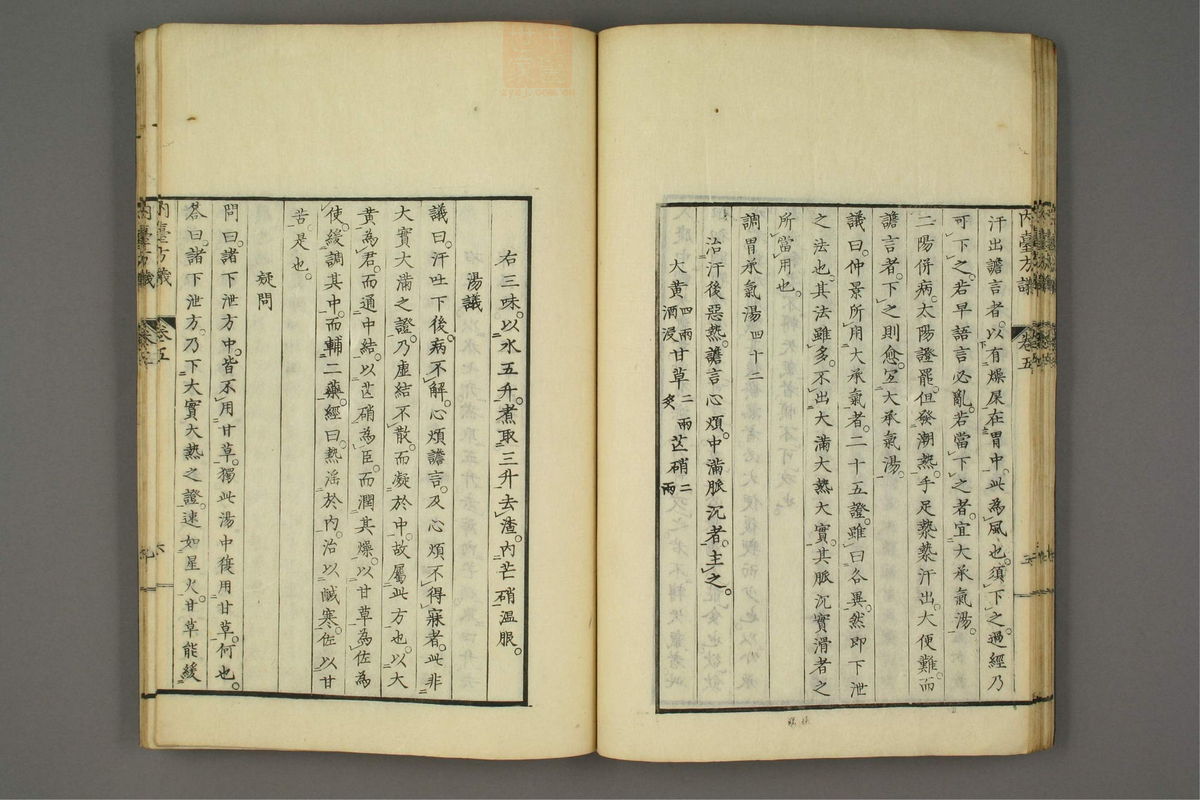 汗出譫言者。以有燥屎在胃中。此為風也。須下之過經乃
可下之。若早語言必亂。若當下之者。宜大承氣湯。
二陽併病。太陽證罷。但發潮熱。手足漐漐汗出。大便難而
譫言者。下之則愈。宜大承氣湯。
議曰。仲景所用大承氣者。二十五證。雖曰各異。然即下泄
之法也。其法雖多。不出大滿大熱大實。其脈沉實滑者之
所當用也。
調胃承氣湯 四十二
治汗後惡熱。譫言心煩。中滿脈沉者。主之。
大黃 四兩酒浸 甘草 二兩炙 芒硝 二兩
右三味。以水五升。煮取三升去渣。內芒硝溫服。
湯議
議曰。汗吐下後。病不解。心煩譫言。及心煩不得寐者。此非
大實大滿之證。乃虛結不散。而凝於中。故屬此方也。以大
黃為君。而通中結。以芒硝為臣。而潤其燥。以甘草為佐為
使。緩調其中。而輔二藥。經曰。熱淫於內。治以鹹寒。佐以甘
苦。是也。
疑問
問曰。諸下泄方中。皆不用甘草。獨此湯中復用甘草。何也。
答曰。諸下泄方。乃下大實大熱之證。速如星火。甘草能緩
內臺方議
卷五
六